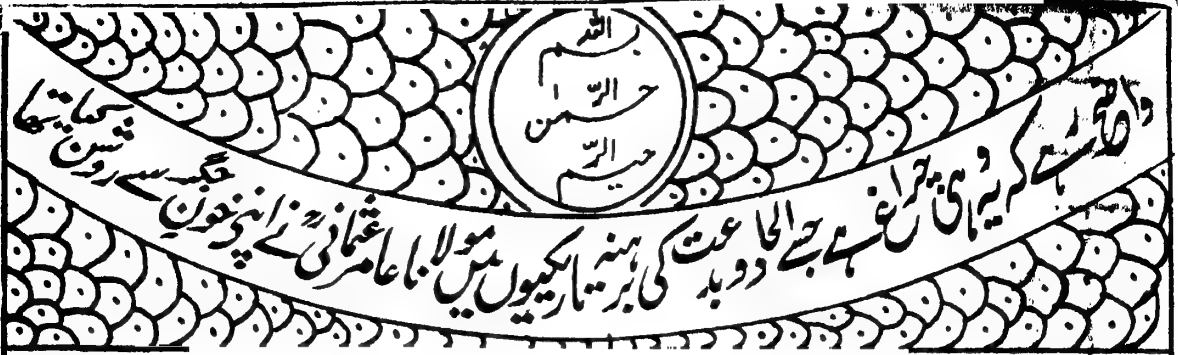 بسم اللہ
الرحمن
الرحیم
واضح رہے کہ یہ وہی چراغ ہے جسے الحاد و بدعت کی برہنہ تاریکیوں میں مولانا عامر عثمانیؒ نے اپنے خونِ جگر سے روشن کیا تھا